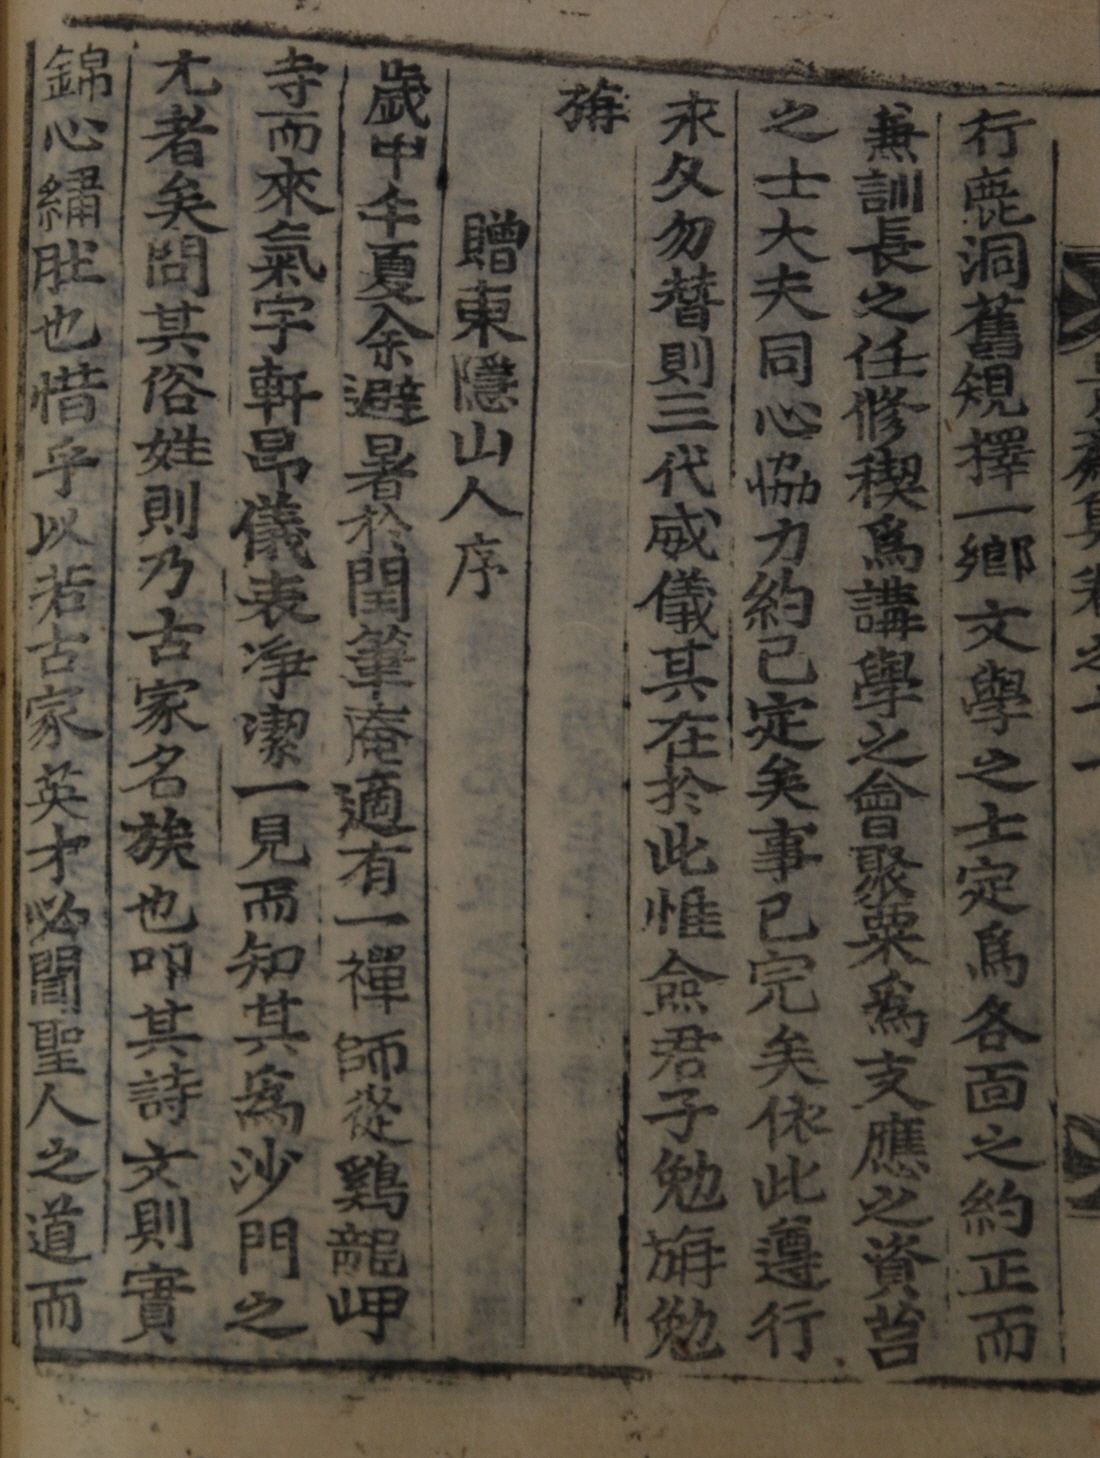 行鹿洞舊規擇一鄉文學之士定爲各面之約正而
兼訓長之任修稧爲講學之會聚粟爲支應之資苔
之士大夫同心協力約已定矣事已完矣依此遵行
永久勿替則三代威儀其在於此惟僉君子勉旃勉
旃
贈東隱山人序
歲中午夏余避暑於閏筆庵適有一禪師從鷄龍岬
寺而來氣宇軒昂儀表净潔一見而知其爲沙門之
尤者矣問其俗姓則乃古家名族也叩其詩文則實
錦心繡肚也惜乎以若古家英才必聞聖人之道而